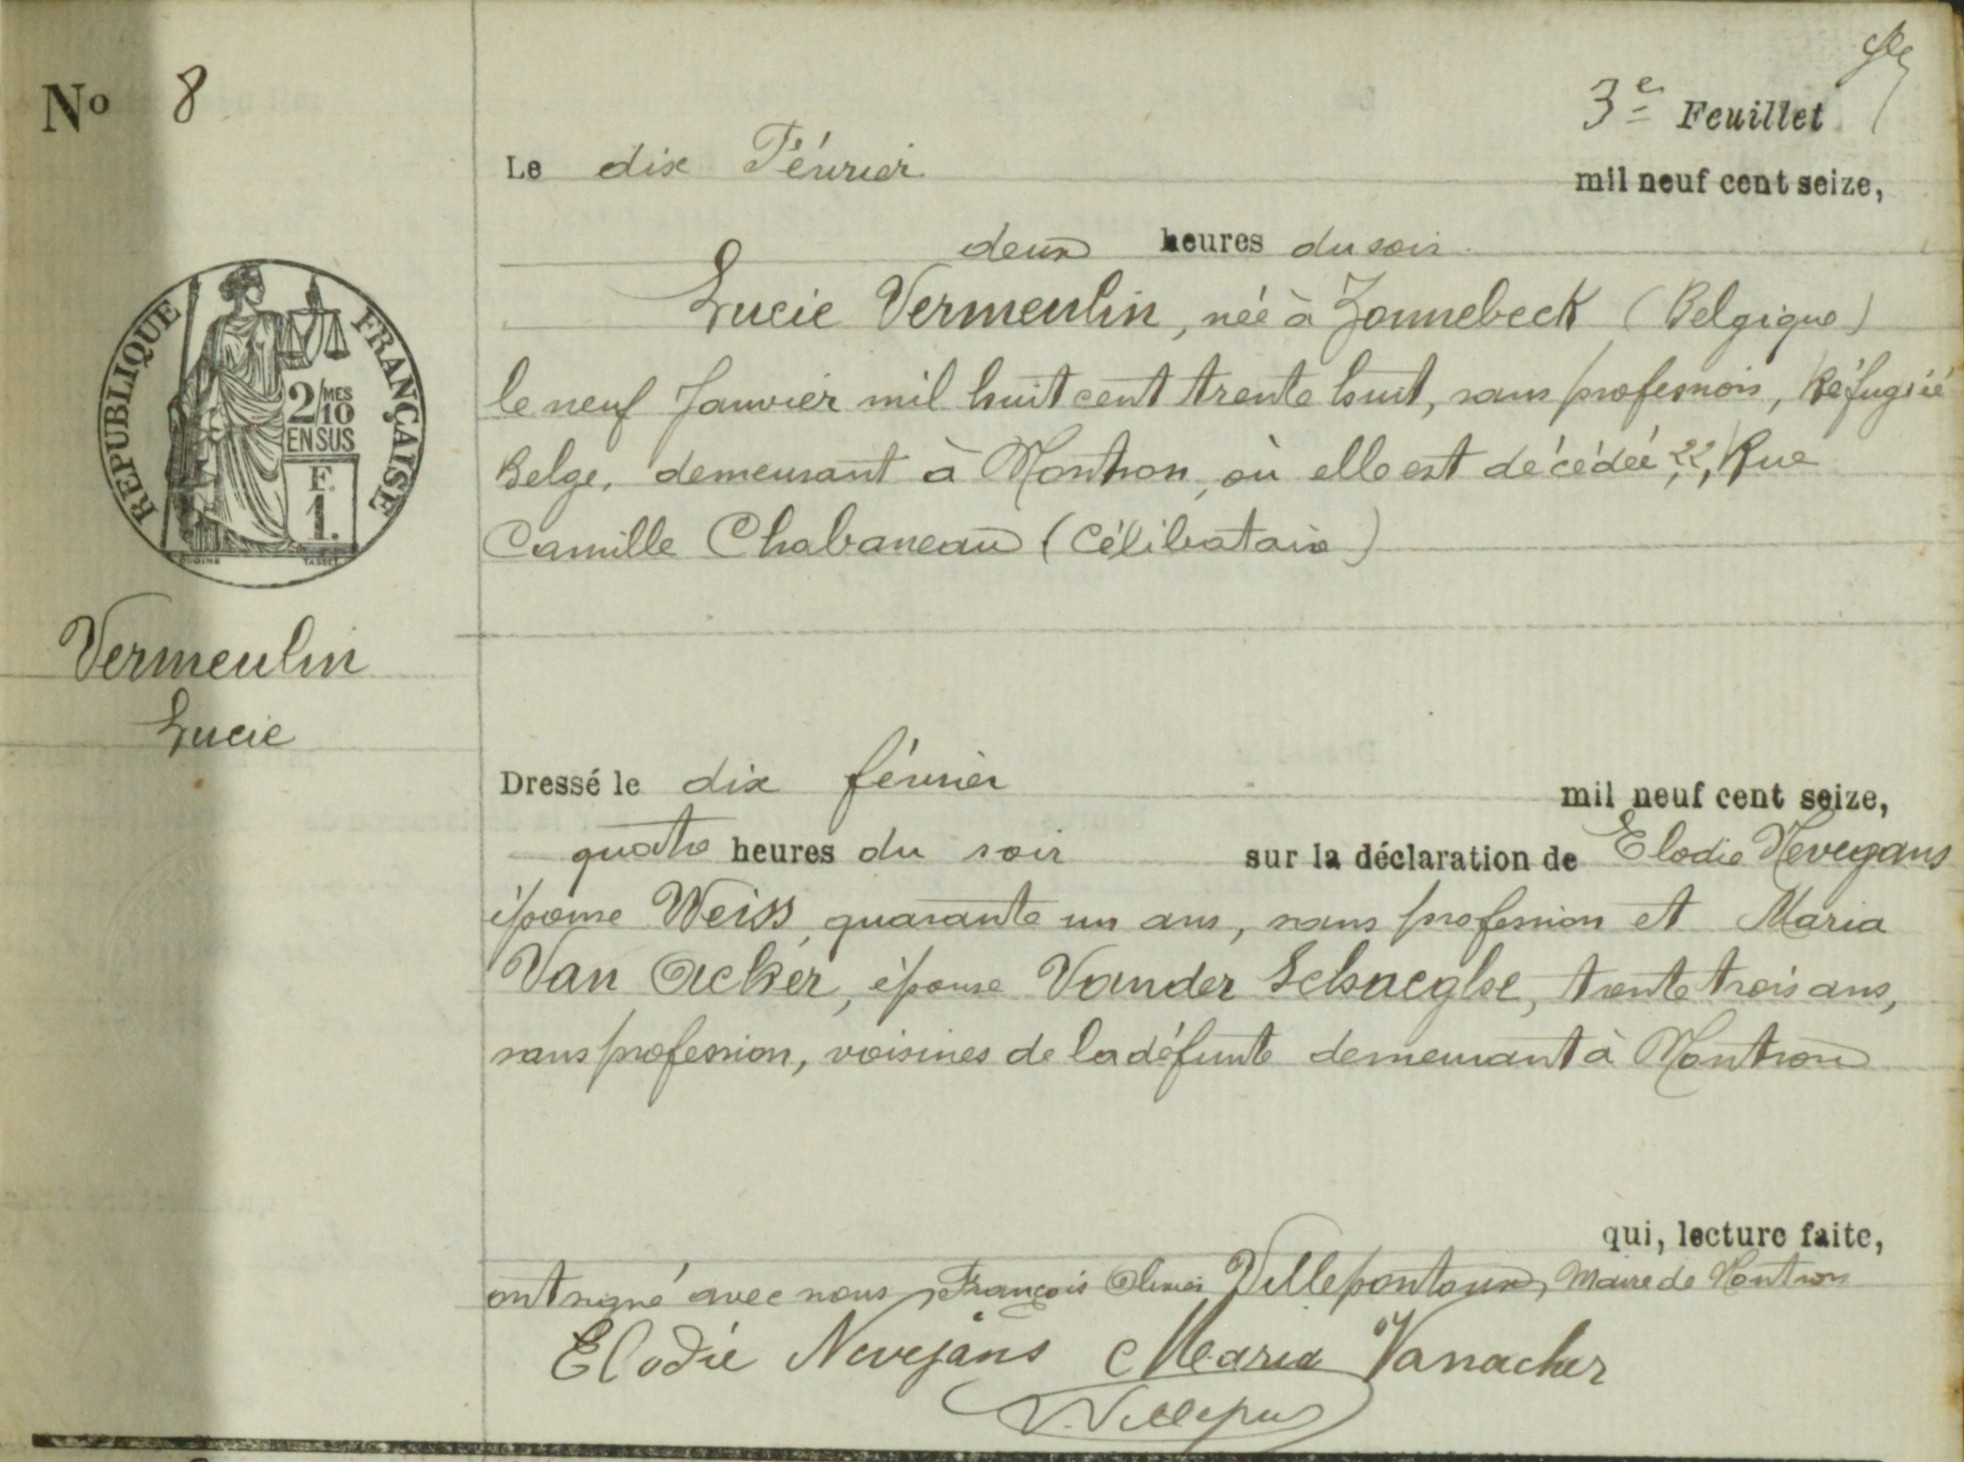 No 8
3e Feuillet
Le dix Février mil neuf cent seize,
deux heures du soir
Lucie Vermeulin, née à Zonnebeck (Belgique)
le neuf Janvier mil huit cent trente huit, sans profession, Réfugiée
Belge, demeurant à Nontron, où elle est décédée, 22, Rue
Camille Chabaneau (Célibataire)
REPUBLIQUE FRANÇAISE
2/MES
10
EN SUS
F.
1.
Vermeulin
Lucie
Dressé le dix février mil neuf cent seize,
quatre heures du soir sur la déclaration de Elodie Nevegans
épouse Weiss, quarante un ans, sans profession et Maria
Van Acker, épouse Vander Schaeghe, trente trois ans,
sans profession, voisines de la défunte demeurant à Nontron
qui, lecture faite,
ont signé avec nous, François Olivier Villepontoux, Maire de Nontron
Elodie Nevejans Maria Vanacker